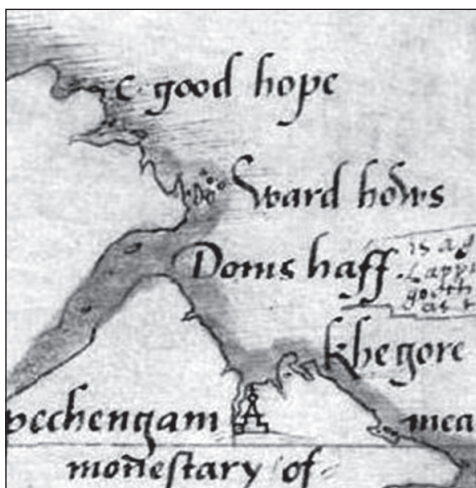 c. good hope
Ward hows
Doms haff.
is a g
Lapp
khegore
pechengam
mea
monestary of